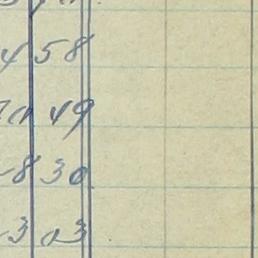 4 58
49
8 30
3 03